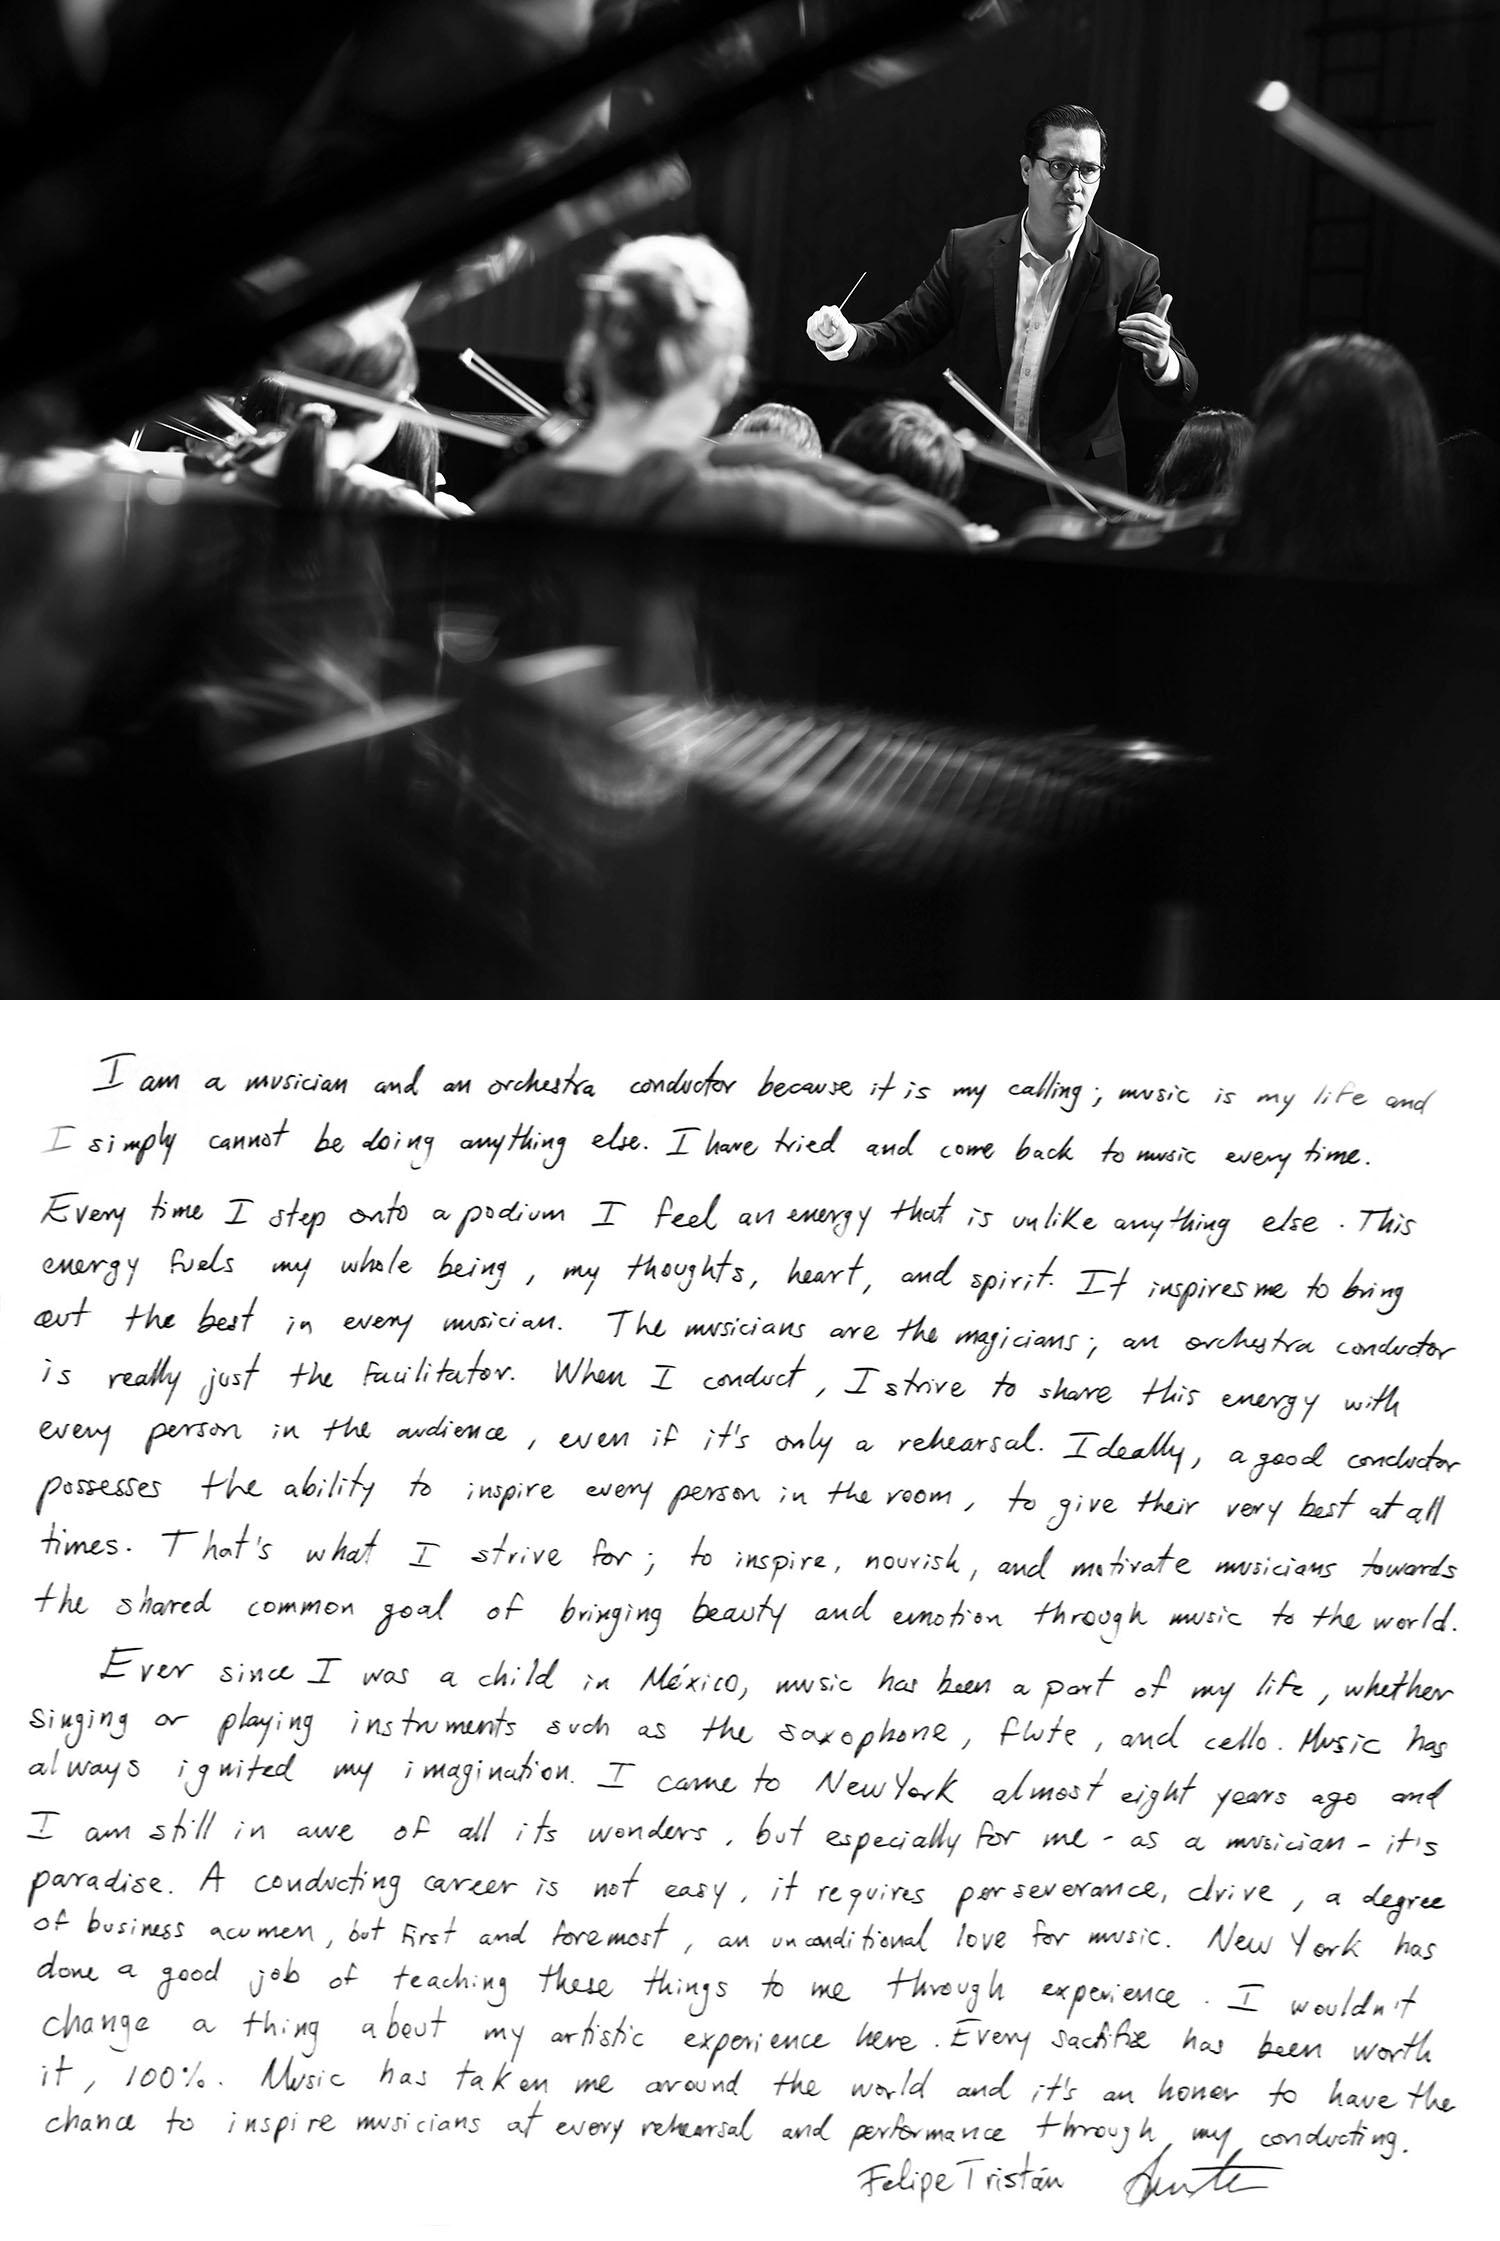 I am a musician and an orchestra conductor because it is my calling; music is my life and
I simply cannot be doing anything else. I have tried and come back to music every time.
Every time I step onto a podium I feel an energy that is unlike anything else. This
energy fuels my whole being, my thoughts, heart, and spirit. It inspires me to bring
out the best in every musician. The musicians are the magicians; an orchestra conductor
is really just the facilitator. When I conduct, I strive to share this energy with
every person in the audience, even if it's only a rehearsal. Ideally, a good conductor
possesses the ability to inspire every person in the room, to give their very best at all
times. That's what I strive for; to inspire, nourish, and motivate musicians towards
the shared common goal of bringing beauty and emotion through music to the world.
Ever since I was a child in México, music has been a part of my life, whether
singing or playing instruments such as the saxophone, flute, and cello. Music has
always ignited my imagination. I came to New York almost eight years ago and
I am still in awe of all its wonders, but especially for me - as a musician - it's
paradise. A conducting career is not easy, it requires perseverance, drive, a degree
of business acumen, but first and foremost, an unconditional love for music. New York has
done a good job of teaching these things to me through experience. I wouldn't
change a thing about my artistic experience here. Every sacrifice has been worth
it, 100%. Music has taken me around the world and it's an honor to have the
chance to inspire musicians at every rehearsal and performance through my conducting.
Felipe Tristán